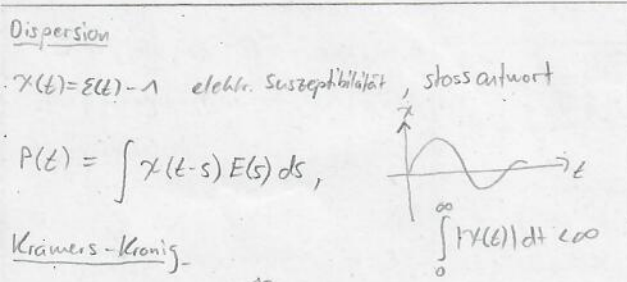 Dispersion
χ(t)=ε(t)-1 elektr. Suszeptibilität, stossantwort
χ
P(t) = ∫ χ(t-s) E(s) ds,
t
∫₀^∞ |χ(t)| dt < ∞
Kramers-Kronig